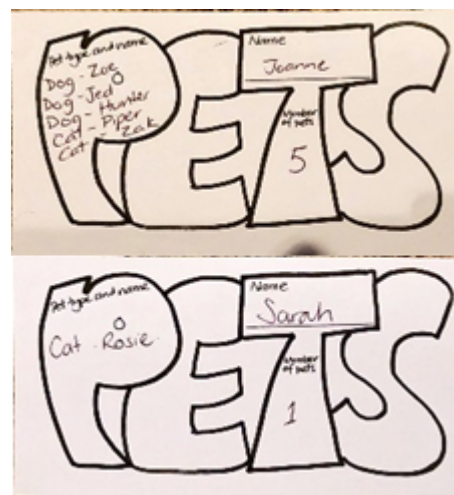 PETS
Pet type and name
Dog - Zoe
Dog - Jed
Dog - Hunter
Cat - Piper
Cat - Zak
Name
Joanne
Number
of pets
5
PETS
Pet type and name
Cat - Rosie
Name
Sarah
Number
of pets
1